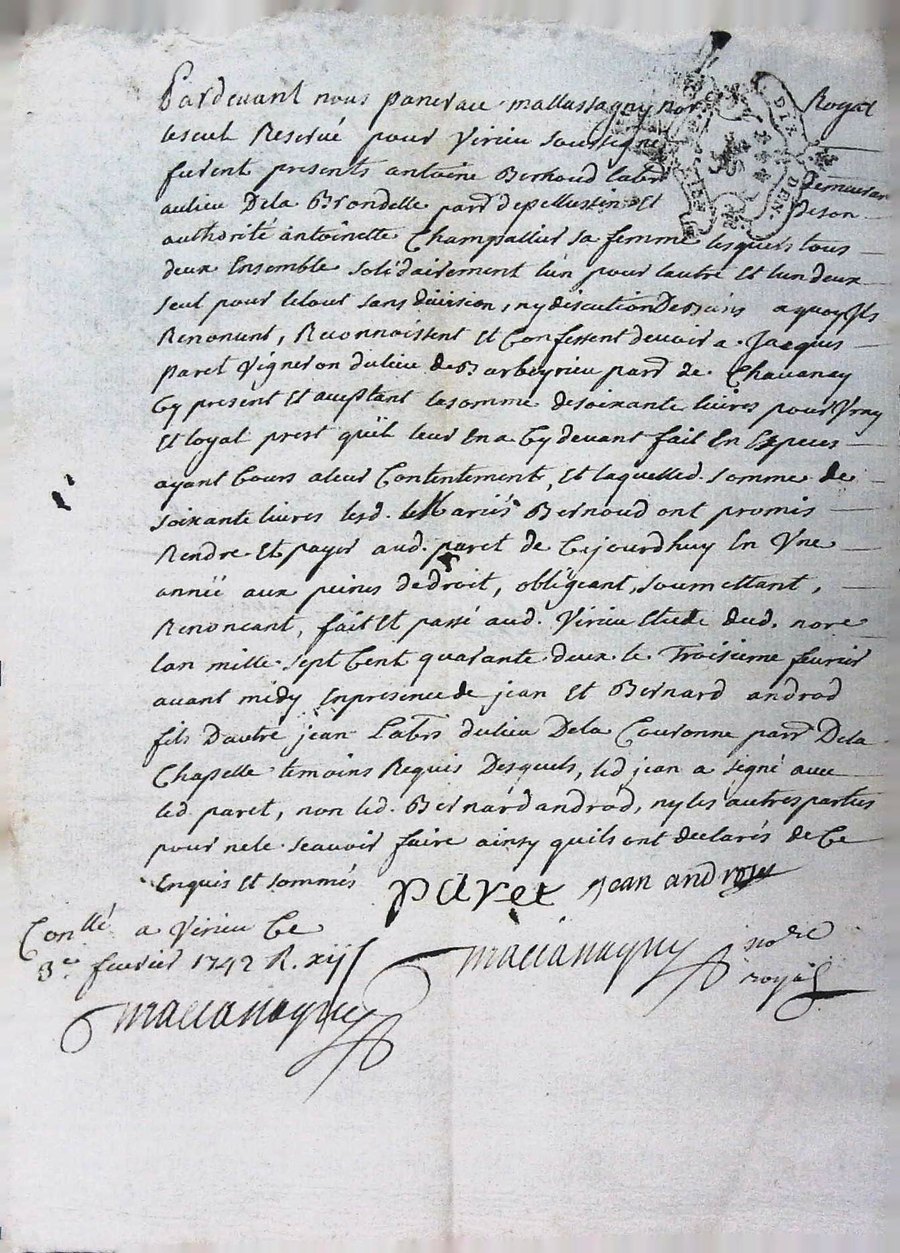 Pardevant nous pancrace mallassagny nore Royal
leseul Reservé pour Virieu soussigné
furent presents antoine Bernoud labr demeurant
aulieu Dela Brondelle parr depellussin Et deson
authorité antoinette Champallier sa femme lesquels tous
deux Ensemble solidairement lun pour lautre Et lun deux
seul pour letout sans division, ny discution Desbiens aquoy Ils
Renoncent, Reconnoissent Et Confessent devoir a Jacques
paret Vigneron dulieu de Barbeyrieu parr de Chavanay
Cy present Et aceptant lasomme desoixante livres pour Vray
Et loyal prest quil leur Ena Cy devant fait En Especes
ayant Cours aleur Contentement, Et laquelled. somme de
soixante livres lesd. Mariés Bernoud ont promis
Rendre Et payer aud. paret de Cejourdhuy En Une
année aux peines dedroit, obligeant, soumettant,
Renoncant, fait Et passé aud. Virieu Etude dud. nore
lan mille sept Cent quarante deux le Troisieme fevrier
avant midy Enpresence de jean Et Bernard androd
fils Dautre jean Labrs dulieu Dela Couronne parr Dela
Chapelle temoins Requis Desquels, led jean a signé avec
led paret, non led. Bernard androd, ny les autres parties
pour nele scavoir faire ainsy quils ont declarés de Ce
Enquis Et sommés
paret jean androd
Conllé a Virieu Ce
3e fevrier 1742 R. xij s
nore
royal
DIX DEN